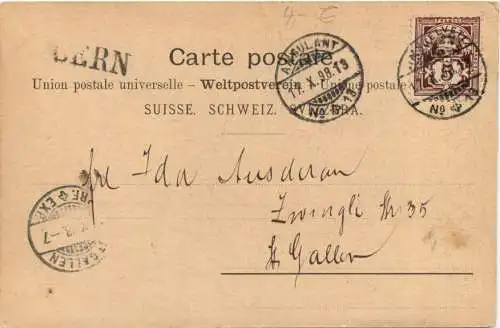 4 - €
BERN
Carte postale.
Union postale universelle. — Weltpostverein. — Unione postale
SUISSE. SCHWEIZ. SVIZZERA.
AMBULANT
17. X. 98. 13
No 13
HELVETIA
5
AMBULANT
No 13
Ida
Zwingli Str 35
St. Gallen
ST. GALLEN